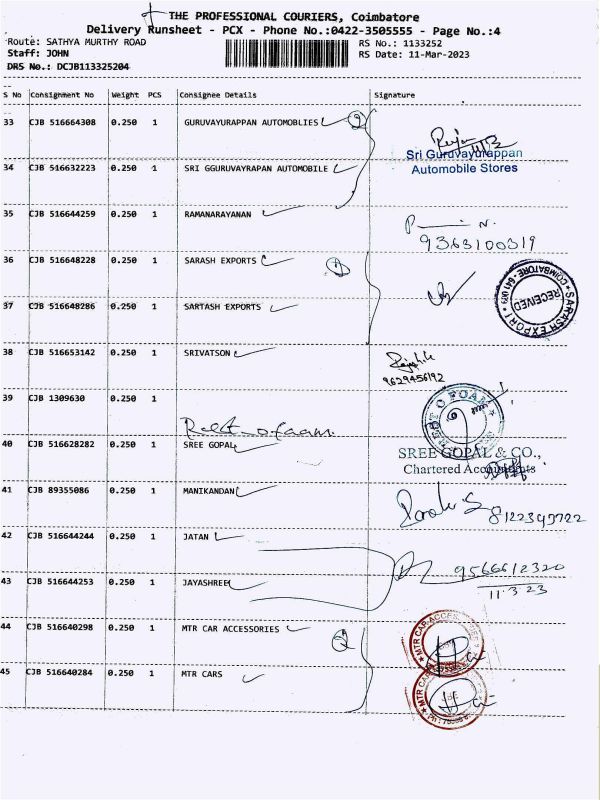 THE PROFESSIONAL COURIERS, Coimbatore
Delivery Runsheet - PCX - Phone No.:0422-3505555 - Page No.:4
Route: SATHYA MURTHY ROAD RS No.: 1133252
Staff: JOHN RS Date: 11-Mar-2023
DRS No.: DCJB113325204
S No Consignment No Weight PCS Consignee Details Signature
33 CJB 516664308 0.250 1 GURUVAYURAPPAN AUTOMOBLIES 2
Sri Guruvayurappan
Automobile Stores
34 CJB 516632223 0.250 1 SRI GGURUVAYRAPAN AUTOMOBILE
35 CJB 516644259 0.250 1 RAMANARAYANAN
9363100319
36 CJB 516648228 0.250 1 SARASH EXPORTS
SARASH EXPORT
COIMBATORE - 641 009
RECEIVED
37 CJB 516648286 0.250 1 SARTASH EXPORTS
38 CJB 516653142 0.250 1 SRIVATSON
9629456192
39 CJB 1309630 0.250 1
Rest o foam
REST O FOAM
40 CJB 516628282 0.250 1 SREE GOPAL
SREE GOPAL & CO.,
Chartered Accountants
41 CJB 89355086 0.250 1 MANIKANDAN
42 CJB 516644244 0.250 1 JATAN
9566612320
11.3.23
43 CJB 516644253 0.250 1 JAYASHREE
44 CJB 516640298 0.250 1 MTR CAR ACCESSORIES 2
MTR CAR ACCESSORIES
45 CJB 516640284 0.250 1 MTR CARS
MTR CAR